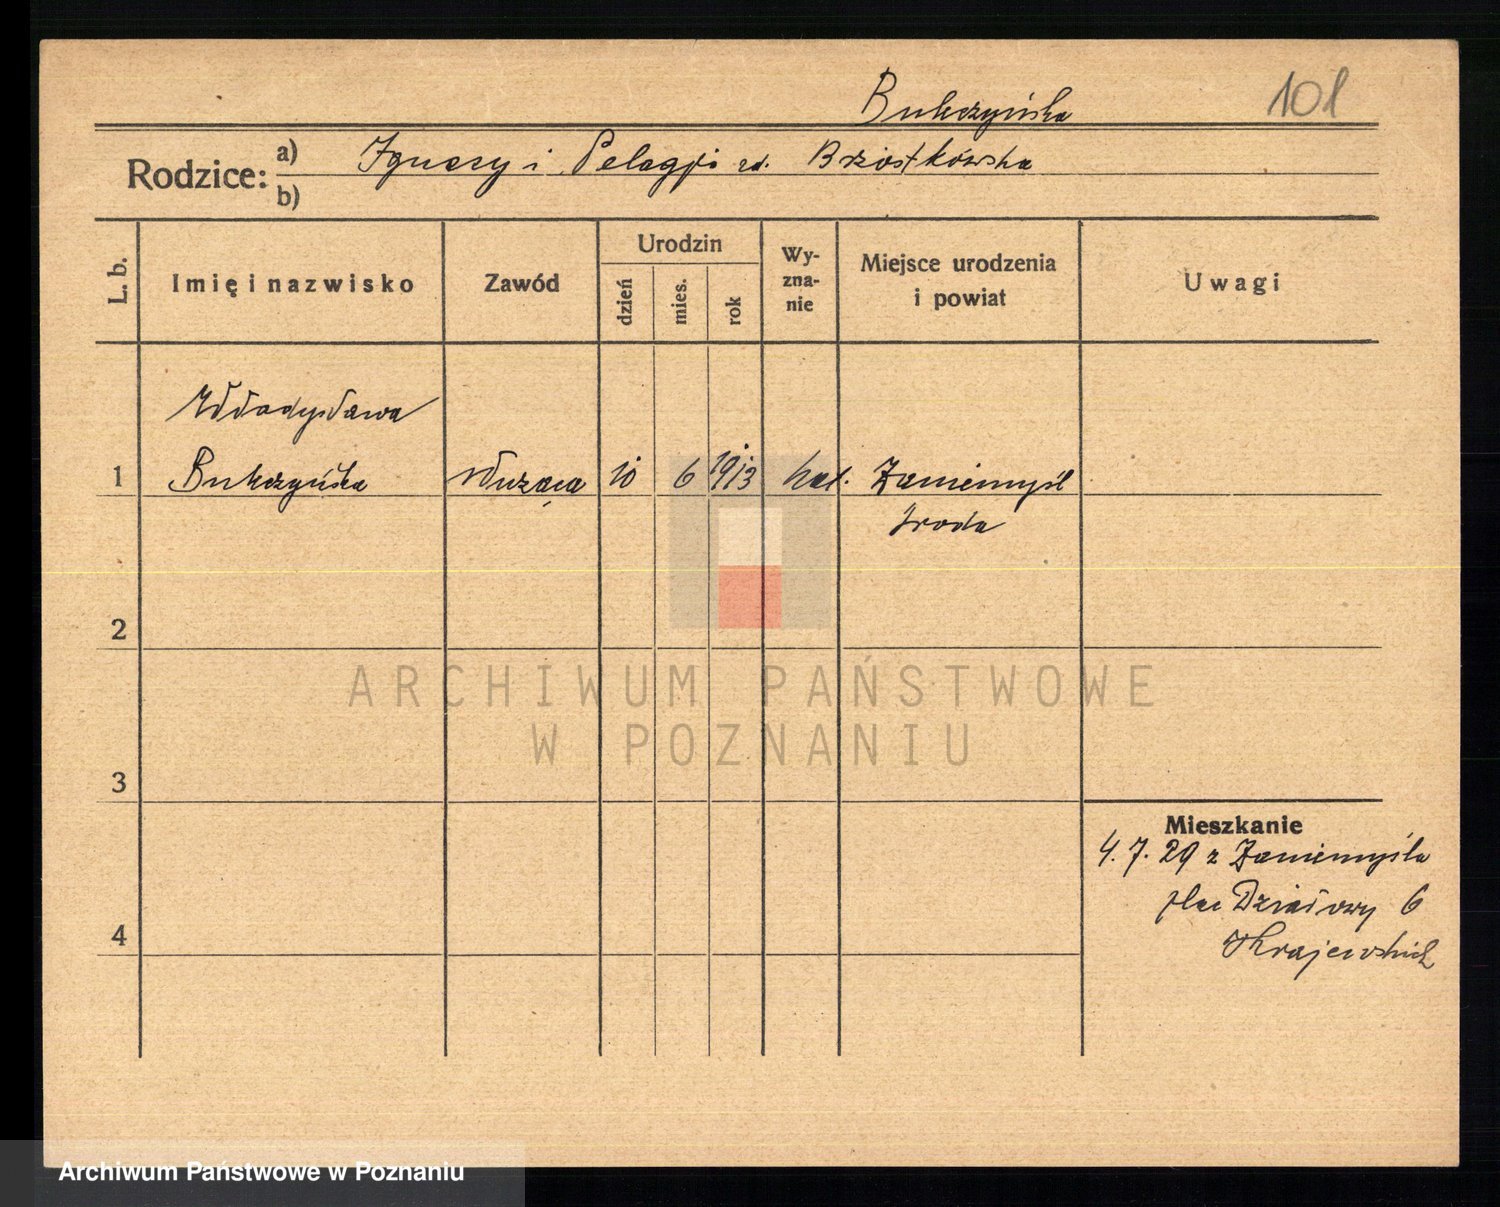 Bukczyńska
101
Rodzice: a) Ignacy i Pelagji zd. Brzostkówska
b)
L. b.
Imię i nazwisko
Zawód
Urodzin
dzień
mies.
rok
Wy-
zna-
nie
Miejsce urodzenia
i powiat
Uwagi
Władysława
1 Bukczyńska służąca 10 6 1913 kat. Zaniemyśl
Środa
2
3
4
ARCHIWUM PAŃSTWOWE
W POZNANIU
Mieszkanie
4. 7. 29 z Zaniemyśla
plac Działowy 6
Krajewskich
Archiwum Państwowe w Poznaniu